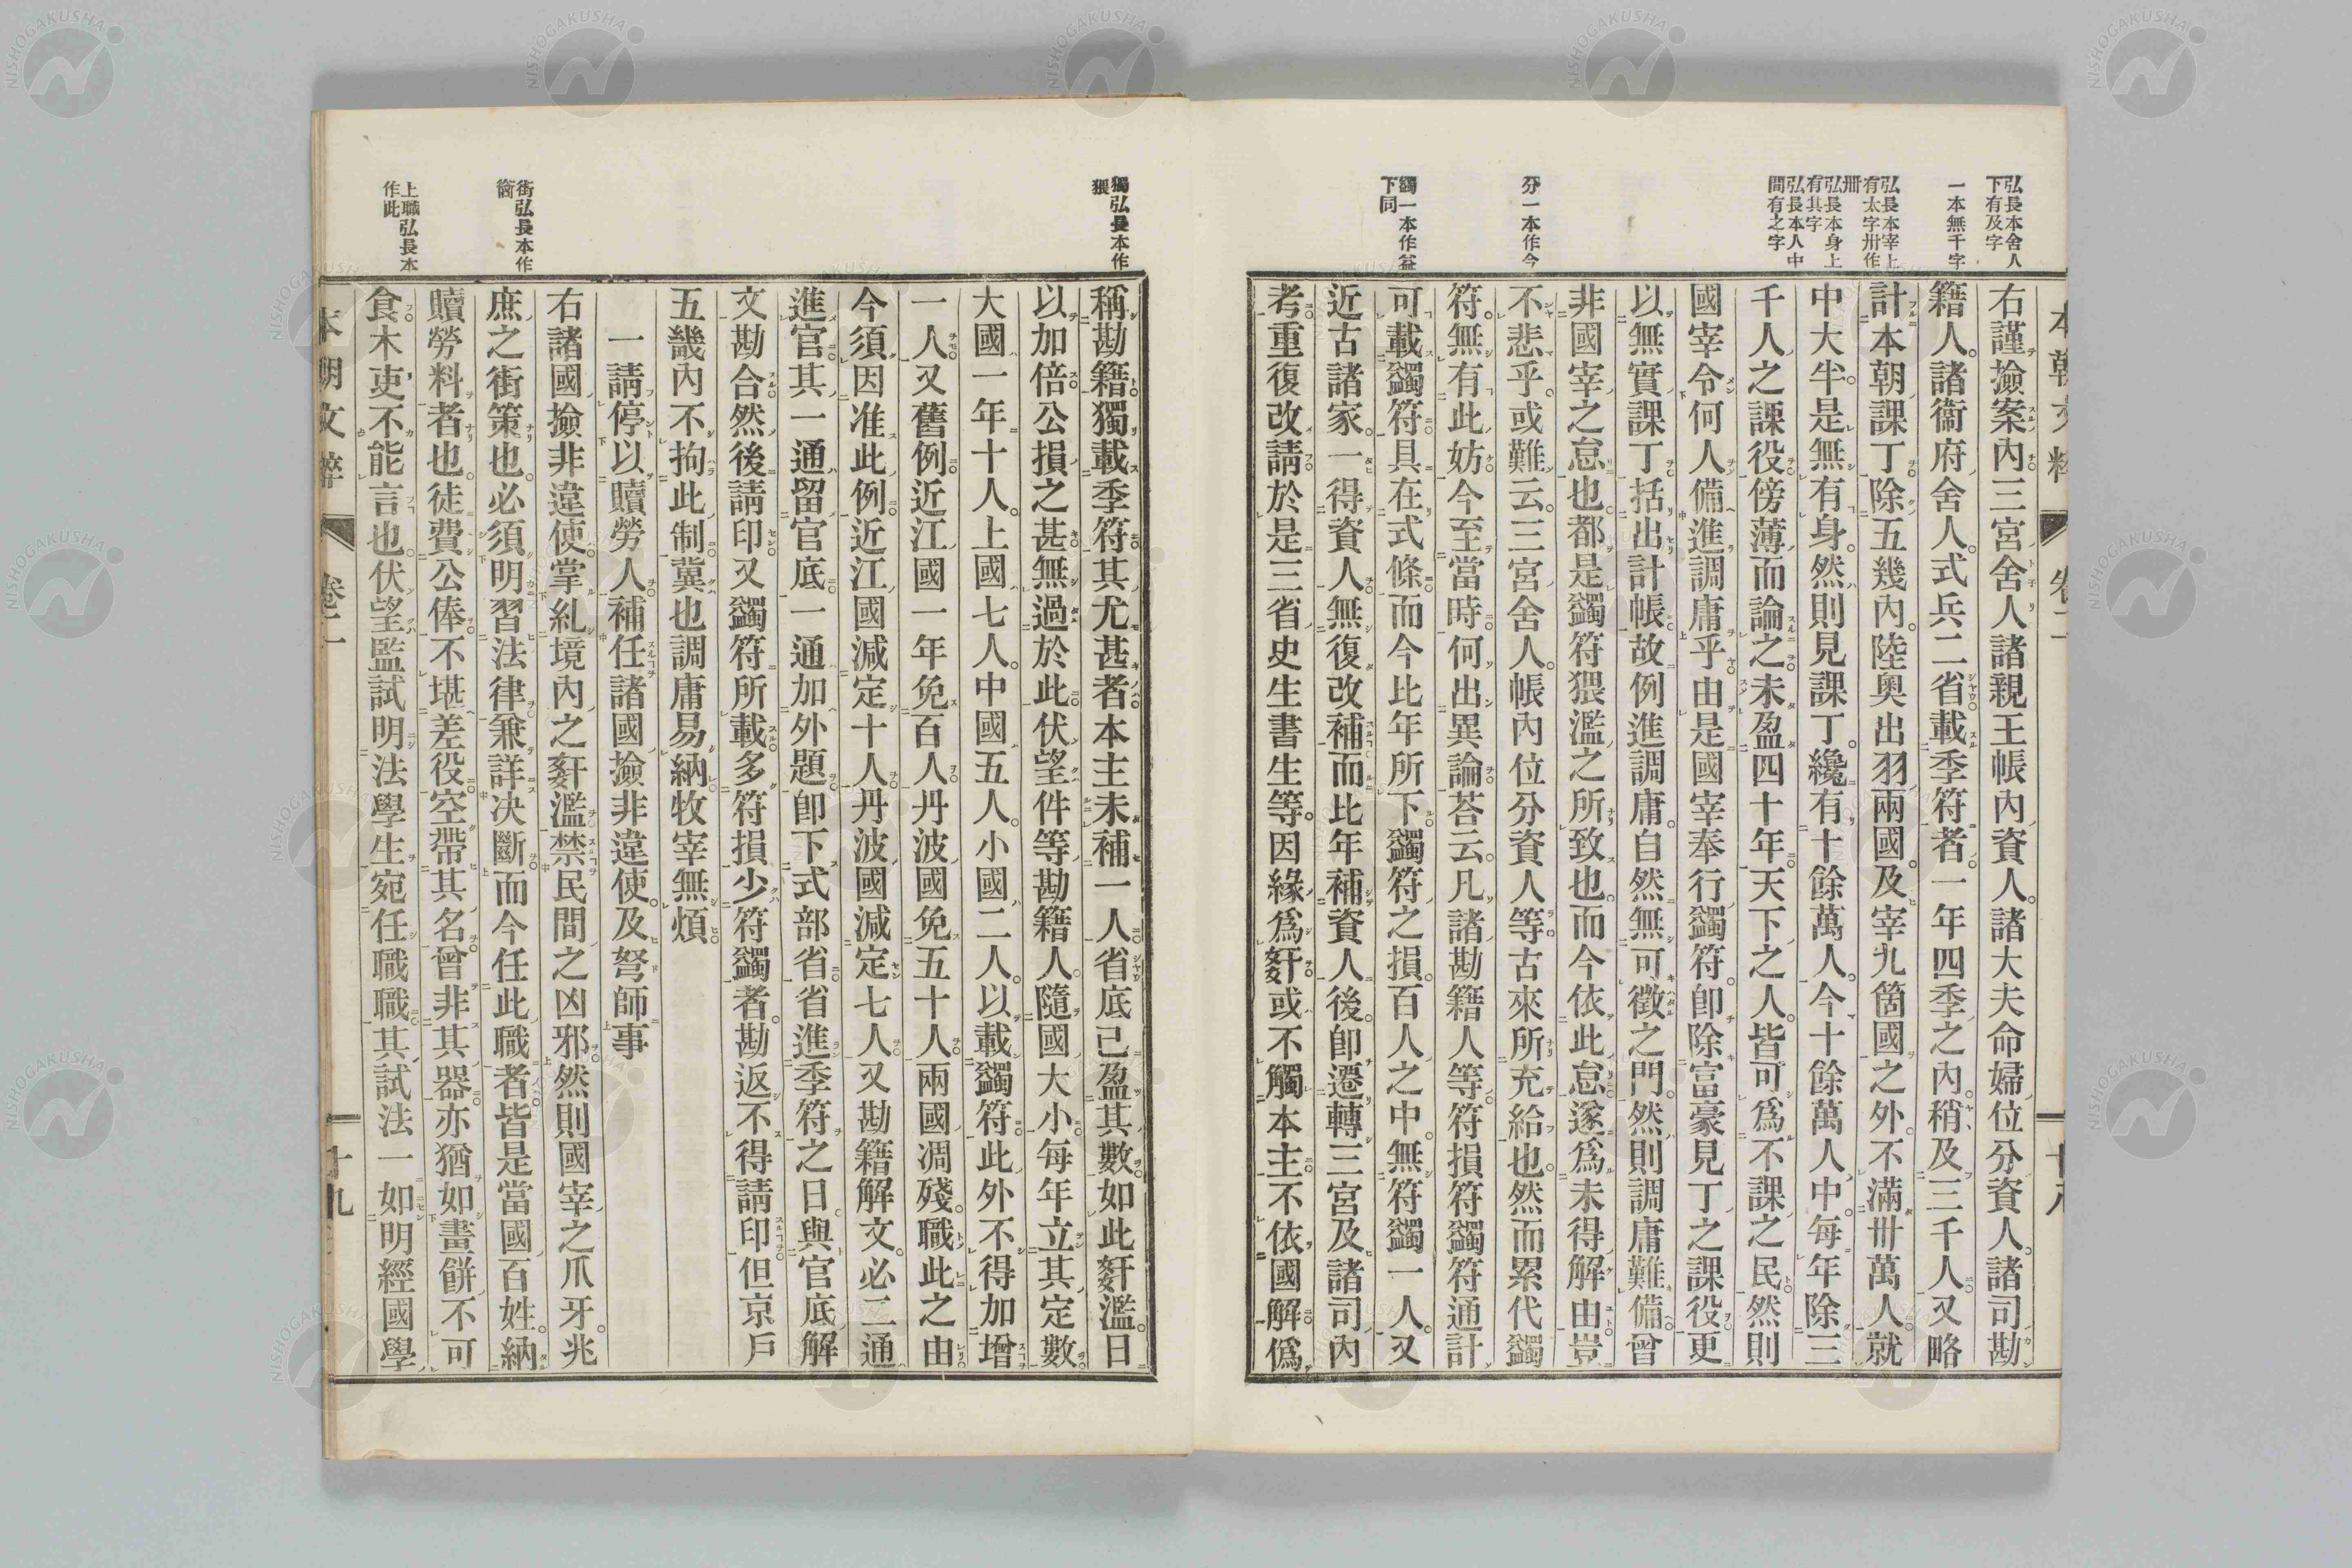 弘長本舍人
下有及字
一本無千字
弘長本宰上
有太字卅作
卌
弘長本身上
有其字
弘長本人中
間有之字
分一本作今
蠲一本作益
下同
右謹撿案內三宮舍人諸親王帳內資人諸大夫命婦位分資人諸司勘
籍人諸衞府舍人式兵二省載季符者一年四季之內稍及三千人又略
計本朝課丁除五幾內陸奧出羽兩國及宰九箇國之外不滿卅萬人就
中大半是無有身然則見課丁纔有十餘萬人今十餘萬人中每年除三
千人之課役傍薄而論之未盈四十年天下之人皆可爲不課之民然則
國宰令何人備進調庸乎由是國宰奉行蠲符卽除富豪見丁之課役更
以無實課丁括出計帳故例進調庸自然無可徵之門然則調庸難備曾
非國宰之怠也都是蠲符猥濫之所致也而今依此怠遂爲未得解由豈
不悲乎或難云三宮舍人帳內位分資人等古來所充給也然而累代蠲
符無有此妨今至當時何出異論荅云凡諸勘籍人等符損符蠲符通計
可載蠲符具在式條而今比年所下蠲符之損百人之中無符蠲一人又
近古諸家一得資人無復改補而比年補資人後卽遷轉三宮及諸司內
考重復改請於是三省史生書生等因緣爲姧或不觸本主不依國解僞
本朝文粹 卷二 十八
獨弘長本作
猥
街弘長本作
衢
上職弘長本
作此
稱勘籍獨載季符其尤甚者本主未補一人省底已盈其數如此姧濫日
以加倍公損之甚無過於此伏望件等勘籍人隨國大小每年立其定數
大國一年十人上國七人中國五人小國二人以載蠲符此外不得加增
一人又舊例近江國一年免百人丹波國免五十人兩國凋殘職此之由
今須因准此例近江國減定十人丹波國減定七人又勘籍解文必二通
進官其一通留官底一通加外題卽下式部省省進季符之日與官底解
文勘合然後請印又蠲符所載多符損少符蠲者勘返不得請印但京戶
五畿內不拘此制冀也調庸易納牧宰無煩
一請停以贖勞人補任諸國撿非違使及弩師事
右諸國撿非違使掌糺境內之姧濫禁民間之凶邪然則國宰之爪牙兆
庶之街策也必須明習法律兼詳决斷而今任此職者皆是當國百姓納
贖勞料者也徒費公俸不堪差役空帶其名曾非其器亦猶如畫餅不可
食木吏不能言也伏望監試明法學生宛任職職其試法一如明經國學
本朝文粹 卷二 十九